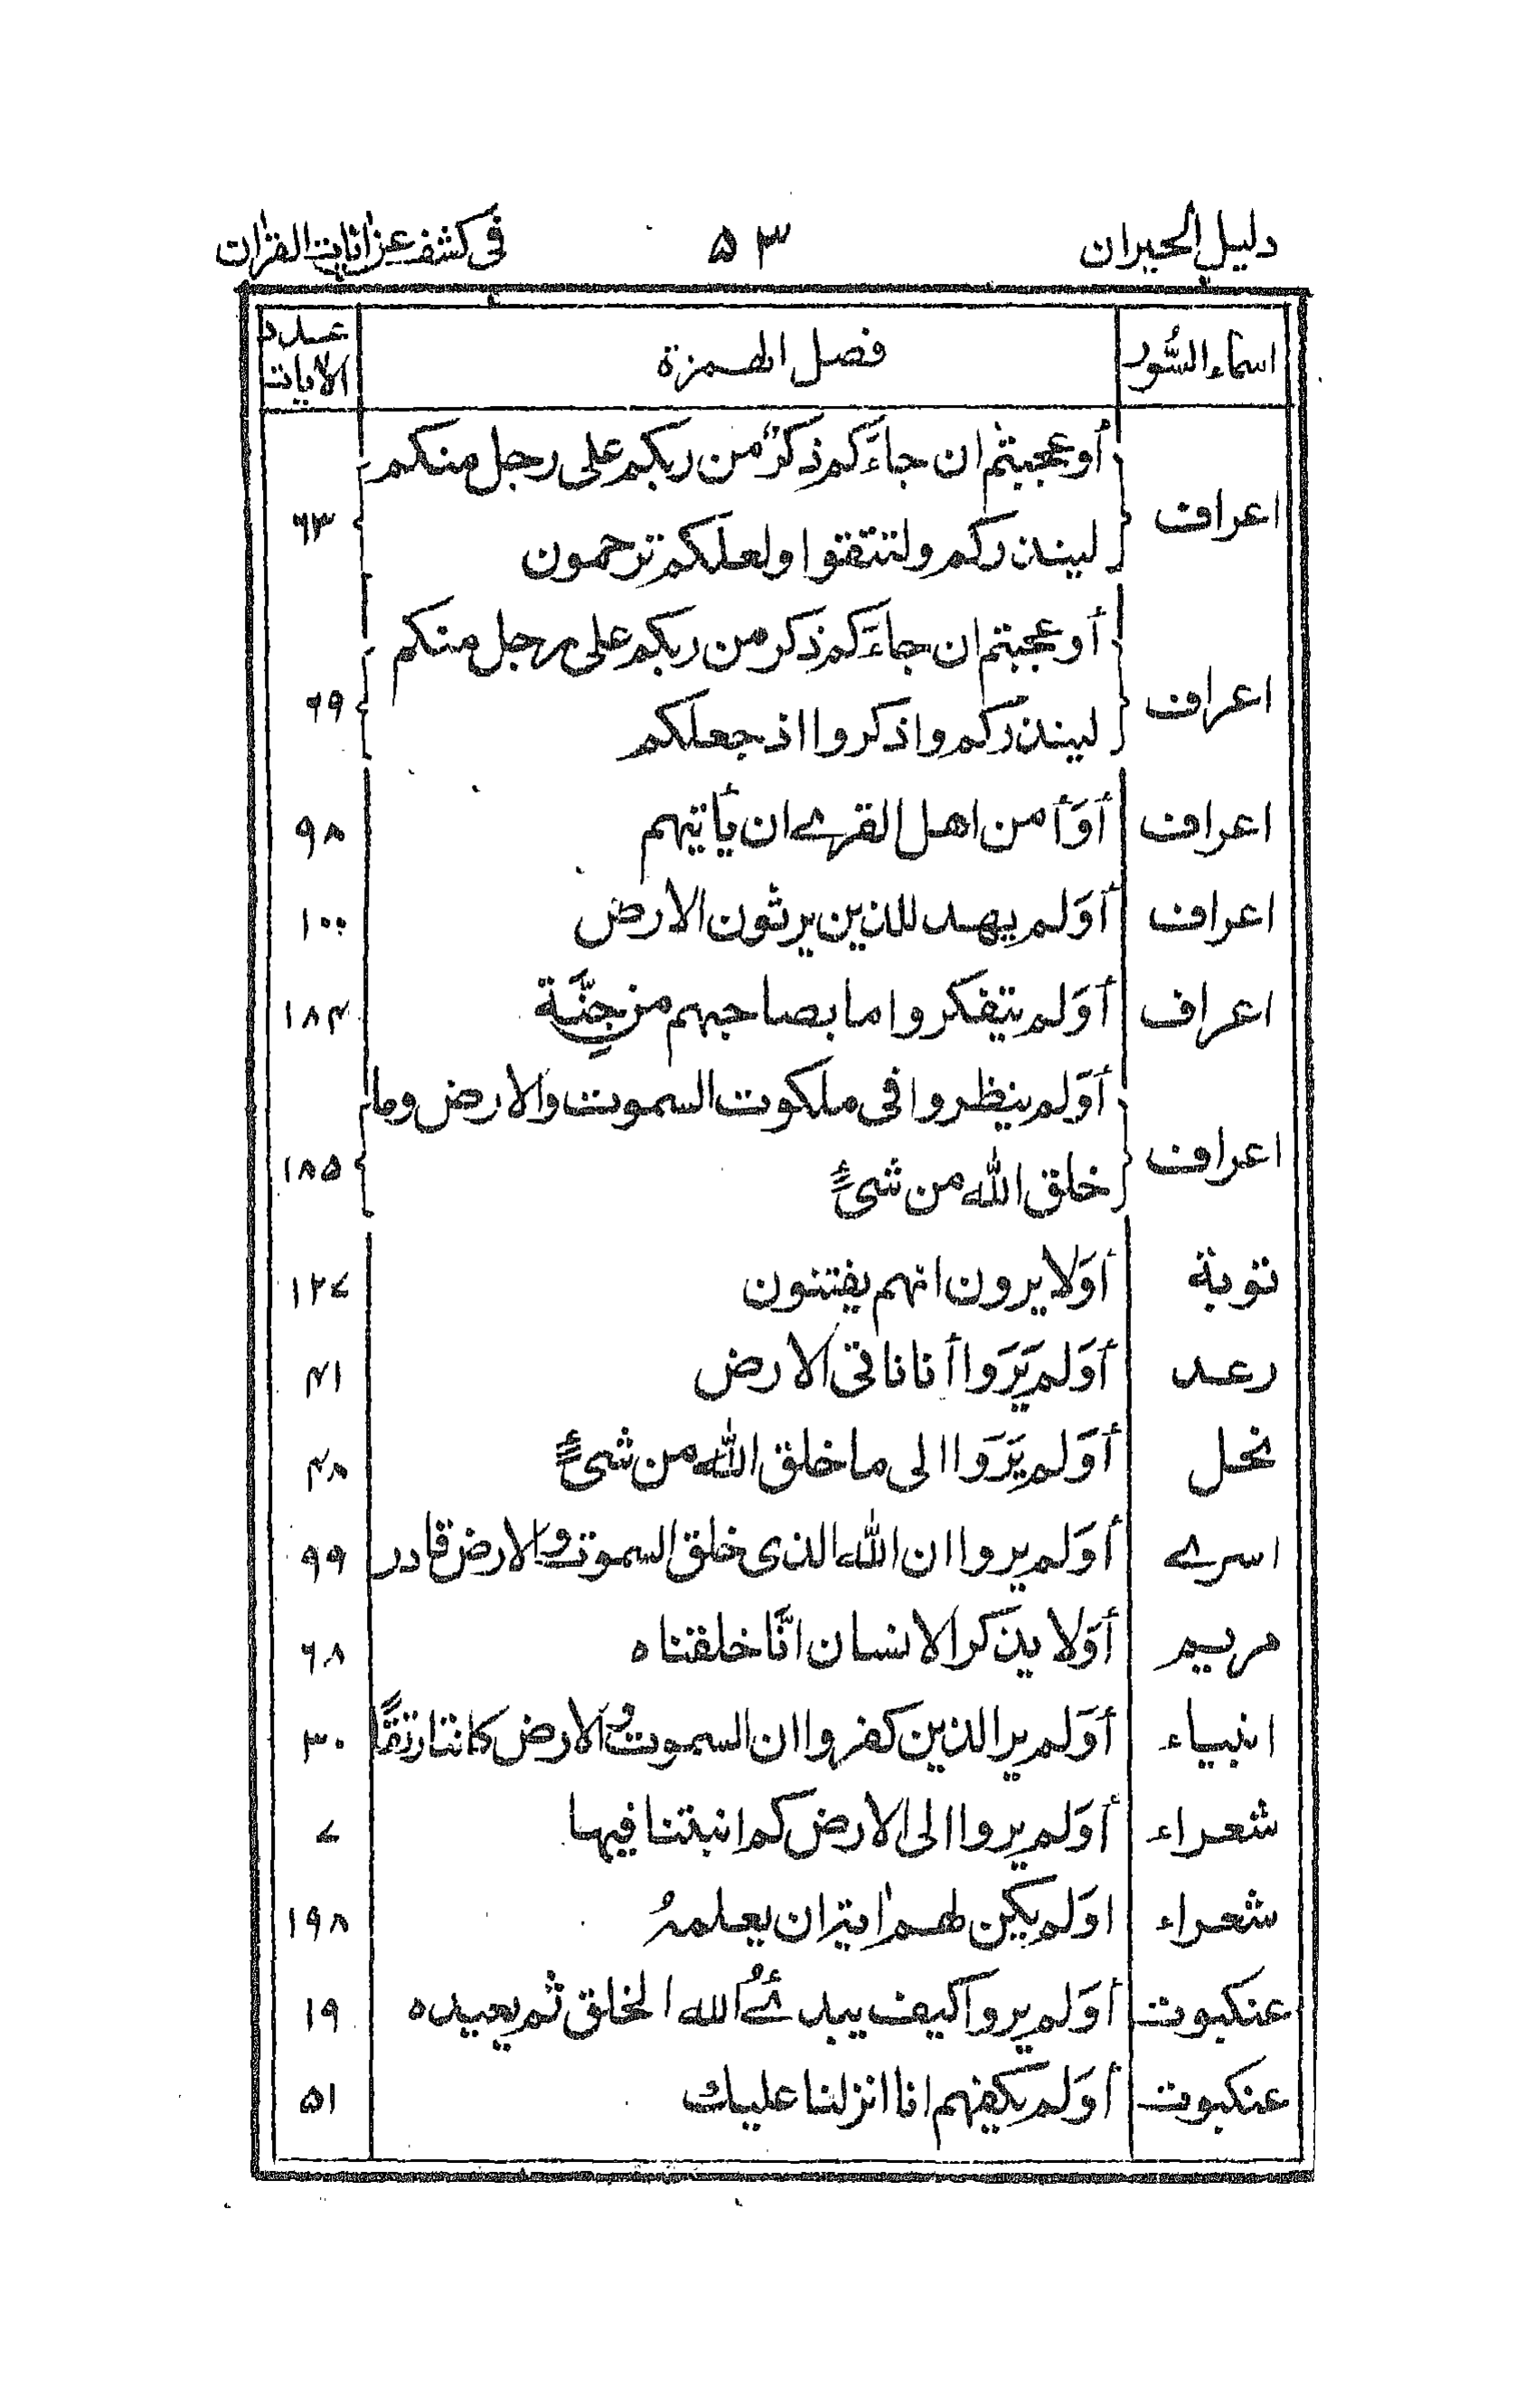 دليل الحيران ۵۳ فى كشف عن اٰيات القراٰن
اسماء السُّور فصل الهمزة عدد الاٰيات
اعراف أوعجبتم ان جاءَكم ذكرٌ من ربكم على رجل منكم ۶۳
لينذركم ولتتقوا ولعلكم ترحمون
اعراف أوعجبتم ان جاءَكم ذكر من ربكم على رجل منكم ۶۹
لينذركم واذكروا اذ جعلكم
اعراف أوَأمن اهل القرے ان يأتيهم ۹۸
اعراف أوَلم يهد للذين يرثون الارض ۱۰۰
اعراف أوَلم يتفكروا ما بصاحبهم من جِنَّة ۱۸۴
اعراف أوَلم ينظروا فى ملكوت السموت والارض وما ۱۸۵
خلق الله من شئٍ
توبة أوَلا يرون انهم يفتنون ۱۲۷
رعد أوَلم يَرَوا أنا ناتى الارض ۴۱
نحل أوَلم يَرَوا الى ما خلق الله من شئٍ ۴۸
اسرے أوَلم يروا ان الله الذى خلق السموت والارض قادر ۹۹
مريم أوَلا يذكر الانسان انَّا خلقناه ۶۸
انبياء أوَلم ير الذين كفروا ان السموت والارض كانتا رتقًا ۳۰
شعراء أوَلم يروا الى الارض كم انبتنا فيها ۷
شعراء اوَلم يكن لهم اٰية ان يعلمهُ ۱۹۸
عنكبوت أوَلم يروا كيف يبدئُ الله الخلق ثم يعيده ۱۹
عنكبوت أوَلم يكفهم انا انزلنا عليك ۵۱